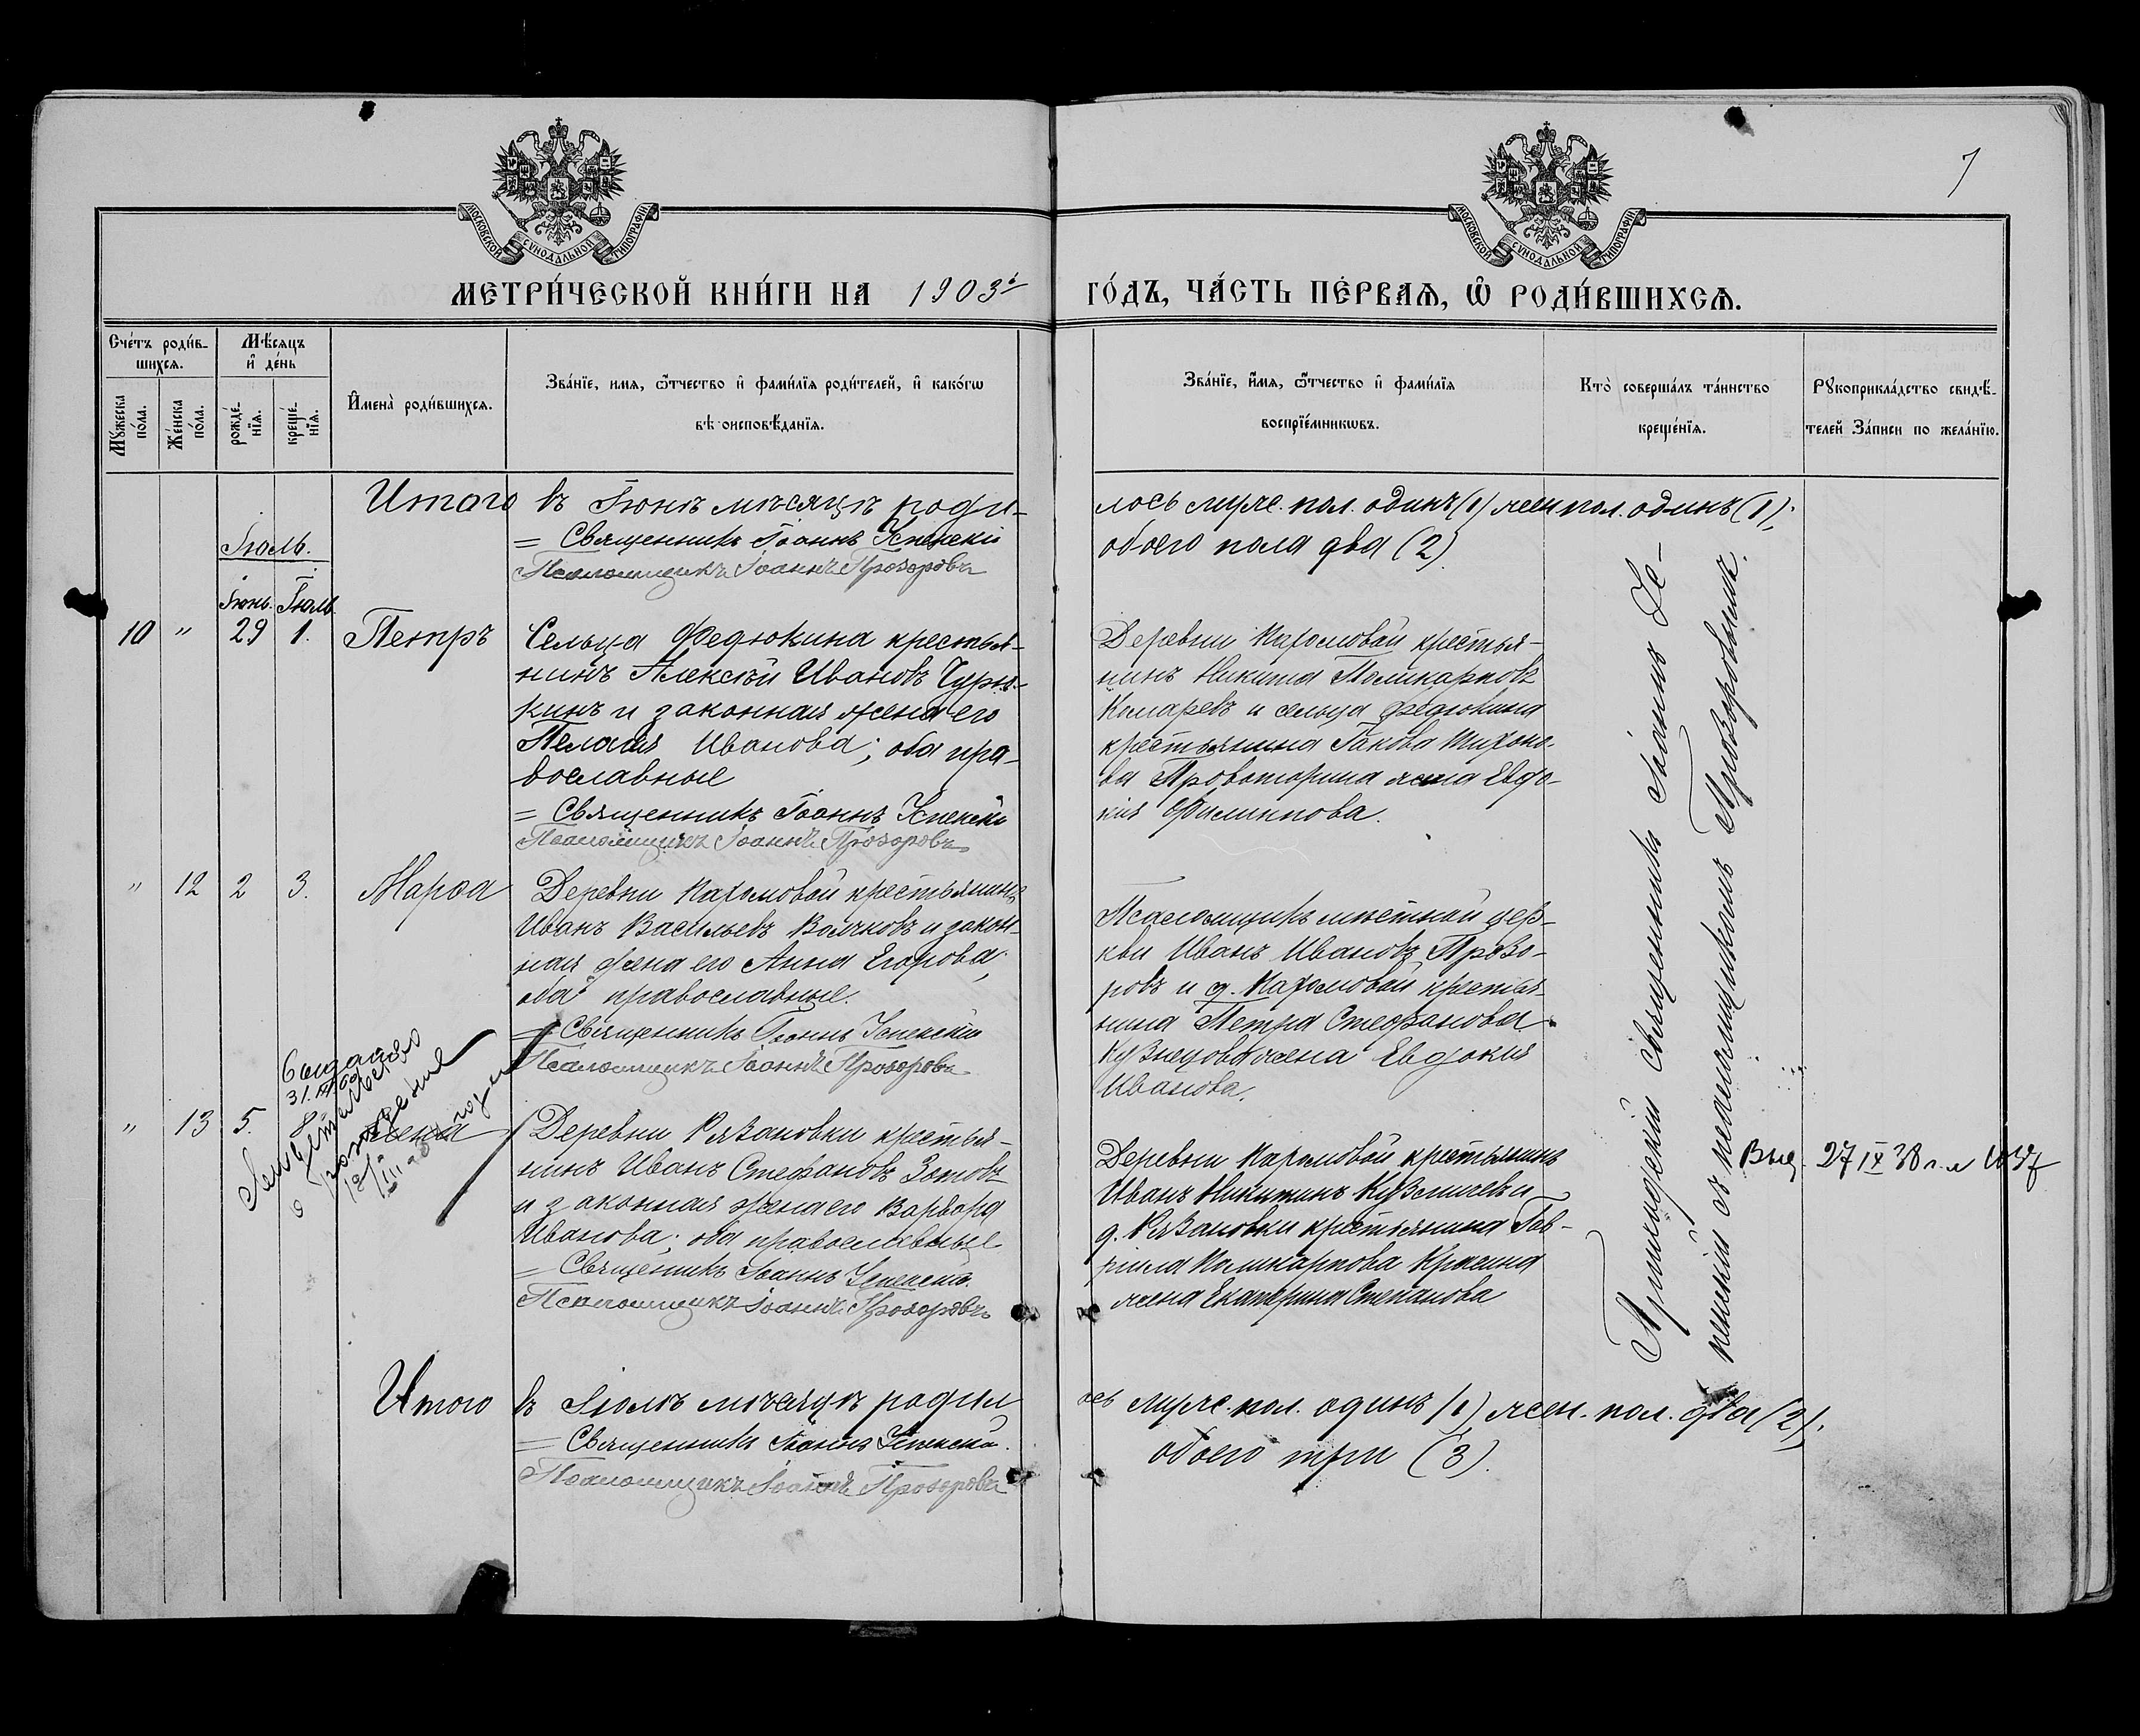 7
МОСКОВСКОЙ СѴНОДАЛЬНОЙ ТИПОГРАФІИ
МОСКОВСКОЙ СѴНОДАЛЬНОЙ ТИПОГРАФІИ
МЕТРИ́ЧЕСКОЙ КНИ́ГИ НА 1903й
ГО́ДЪ, ЧА́СТЬ ПЕ́РВАѦ, Ѽ РОДИ́ВШИХСѦ.
Сче́тъ роди́в-
шихся.
Мѣ́сяцъ
и҆ де́нь
Мꙋ́жеска
по́ла.
Же́нска
по́ла.
рожде́-
нїя.
креще́-
нїя.
И҆мена̀ роди́вшихся.
Зва́нїе, имя, ѻ҆́тчество и҆ фами́лїя роди́телей, и҆ како́гѡ
вѣроисповѣ́данїя.
Зва́нїе, и҆́мя, ѻ҆́тчество и҆ фами́лїя
воспрїе́мникѡвъ.
Кто̀ соверша́лъ та́инство
креще́нїя.
Рꙋкоприкла́дство свидѣ́-
телей За́писи по жела́нїю.
Итого въ Іюнѣ мѣсяцѣ роди-
= Священникъ Іоаннъ Успенскій
Псаломщикъ Іоаннъ Прозоровъ
лось муже. пол. одинъ (1) жен пол. одинъ (1);
обоего пола два (2)
Іюль.
Іюнь. Іюль.
10 " 29 1. Петръ
Сельца Федюкина крестья-
нинъ Алексѣй Ивановъ Чури-
кинъ и законная жена его
Пелагія Иванова; оба пра-
вославные
= Священникъ Іоаннъ Успенскій
Псаломщикъ Іоаннъ Прозоровъ
Деревни Пахомовой крестья-
нинъ Никита Поликарповъ
Комаревъ и сельца Федюкина
крестьянина Іакова Тихоно-
ва Провоторина жена Евдо-
кія Филиппова.
" 12 2 3. Марѳа
Деревни Пахомовой крестьянинъ
Иванъ Васильевъ Волчковъ и закон-
ная жена его Анна Егорова;
оба православные.
= Священникъ Іоаннъ Успенскій
Псаломщикъ Іоаннъ Прозоровъ
Псаломщикъ мѣстной цер-
кви Иванъ Ивановъ Прозо-
ровъ и д. Пахомовой крестья-
нина Петра Стефанова
Кузнецова жена Евдокия
Иванова.
" 13 5. 8
Свидетельство
о рождении
Деревни Рязановки крестья-
нинъ Иванъ Стефановъ Зотовъ
и законная жена его Варвара
Иванова; оба православные
= Священникъ Іоаннъ Успенскій.
Псаломщикъ Іоаннъ Прозоровъ
Деревни Пахомовой крестьянинъ
Иванъ Никитинъ Кузмичевъ и
д. Рязановки крестьянина Гав-
риила Поликарпова Красина
жена Екатерина Степанова
Приходскій священникъ Іоаннъ Ус-
пенскій съ псаломщикомъ Прозоровымъ.
Выд. 27 IX 38
Итого въ Іюлѣ мѣсяцѣ родил
= Священникъ Іоаннъ Успенскій.
Псаломщикъ Іоаннъ Прозоровъ
ось муже. пол. одинъ (1) жен. пол. два (2);
обоего три (3).